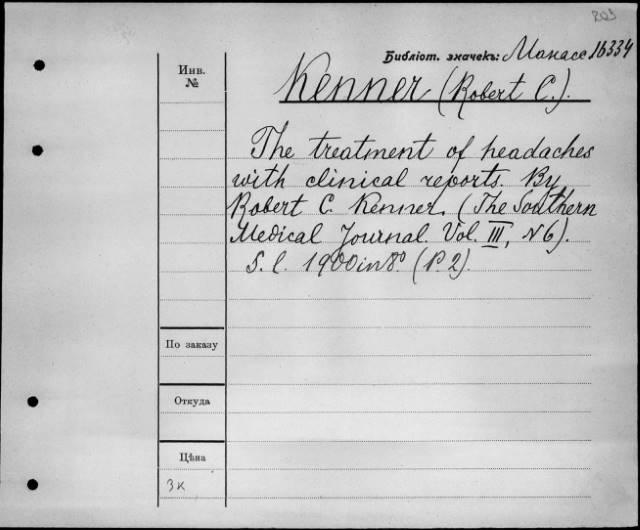 203
Библіот. значекъ: Манасс 16334
Инв.
№
Kenner (Robert C.).
The treatment of headaches
with clinical reports. By
Robert C. Kenner. (The Southern
Medical Journal. Vol. III, N6).
S. l. 1900 in 8º. (P. 2).
По заказу
Откуда
Цѣна
3к